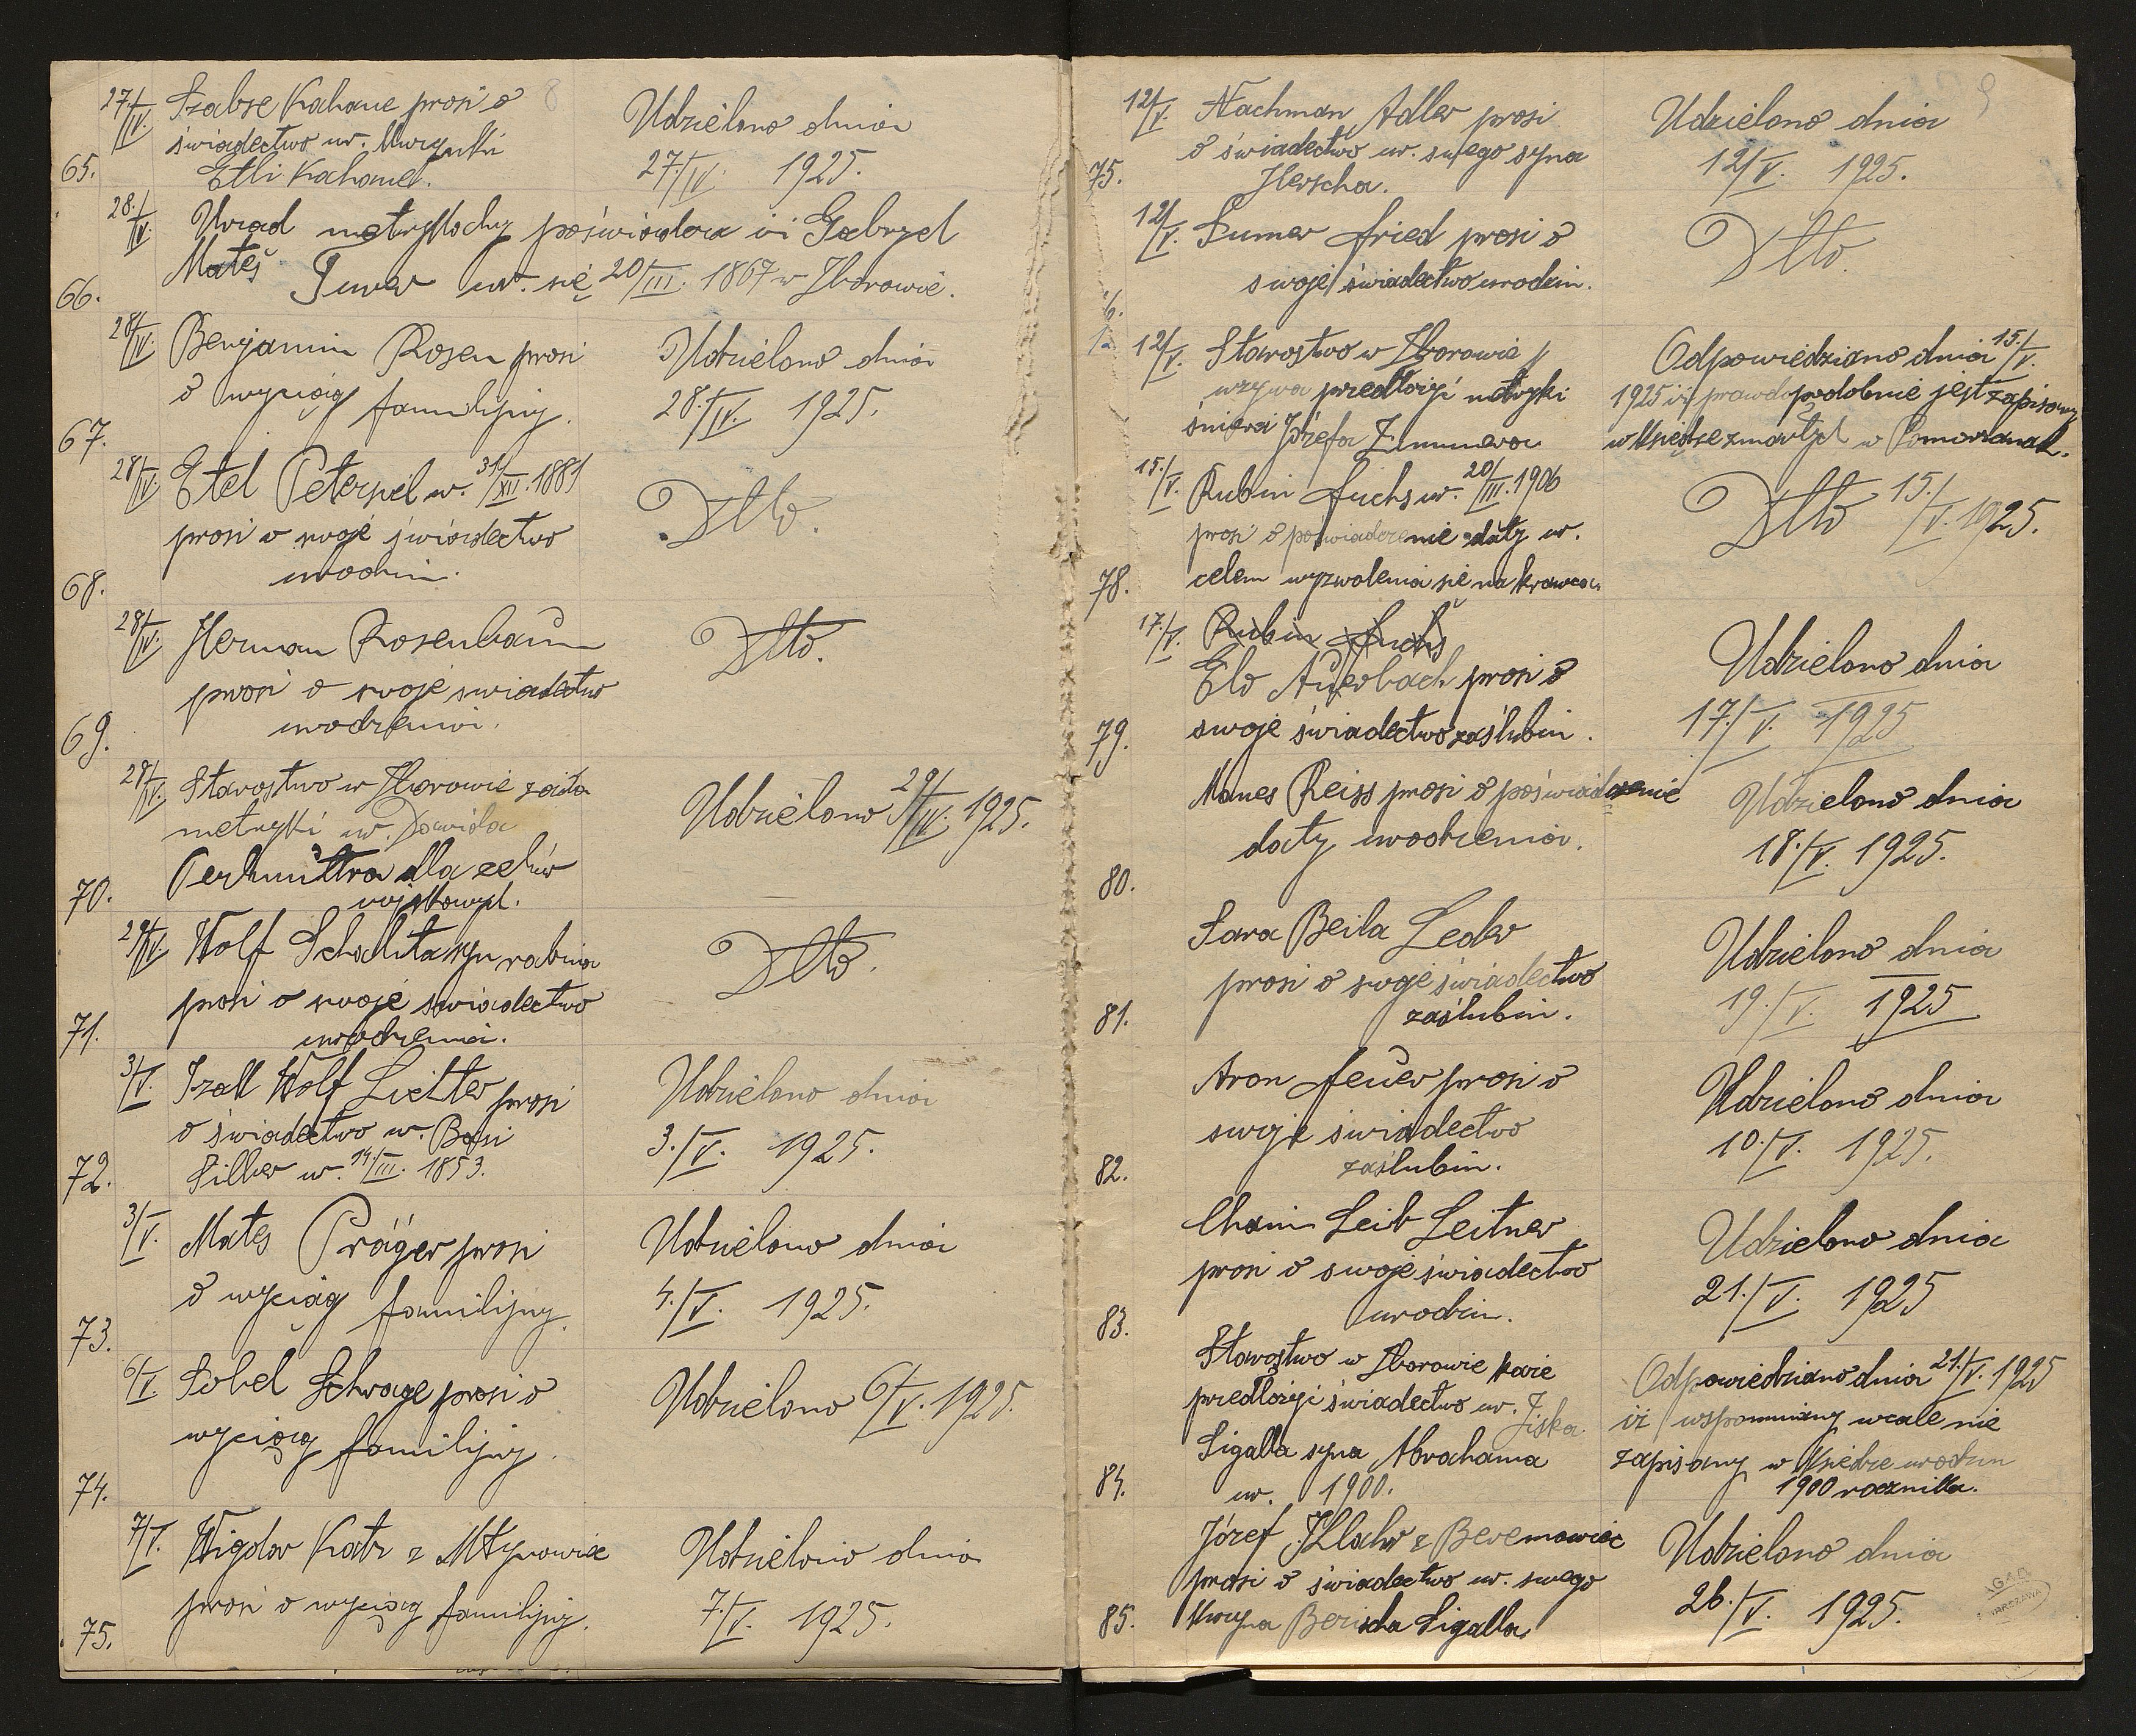 8
27/IV. Szabse Kahane prosi o
świadectwo ur. Kuzynki
65. Etli Kahane.
Udzielono dnia
27./IV. 1925.
28./IV. Urząd metrykalny poświadcza iż Gabryel
Mates
66. ur. się 20/III. 1867 w Zborowie.
28/IV. Benjamin Rosen prosi
o wyciąg familijny.
67.
Udzielono dnia
28./IV. 1925.
28/IV. Etel Peterseil ur. 31/XII. 1881
prosi o swoje świadectwo
68. urodzin.
Dtto.
28/IV. Herman Rosenbaum
prosi o swoje swiadectwo
69. urodzenia.
Dtto.
28/IV. Starostwo w Zborowie żąda
metryki ur. Dawida
dla celów
70. wojskowych.
Udzielono 29/IV. 1925.
29/IV. Wolf Schalita syn rabina
prosi o swoje świadectwo
71. urodzenia.
Dtto.
3/V. Izak Wolf prosi
o świadectwo ur. Basi
72. Silber ur. 14/III. 1853.
Udzielono dnia
3./V. 1925.
3/V. Mates Präger prosi
o wyciąg familijny.
73.
Udzielono dnia
4./V. 1925.
6/V. Sobel Schrage prosi o
wyciąg familijny.
74.
Udzielono 6/V. 1925.
7/V. Wigdor Katz z Młynowiec
prosi o wyciąg familijny.
75.
Udzielono dnia
7./V. 1925.
9
12/V. Nachman Adler prosi
o świadectwo ur. swego syna
75. Herscha.
Udzielono dnia
12/V. 1925.
12/V. Sumer Fried prosi o
swoje świadectwo urodzin.
6.
Dtto.
12/V. Starostwo w Zborowie
wzywa przedłożyć metryki
śmierci Józefa Zimmera
Odpowiedziano dnia 15./V.
1925 iż prawdopodobnie jest zapisany
w Księdze zmarłych w Pomorzanach.
15./V. Rubin Fuchs ur. 20/III. 1906
prosi o poświadczenie daty ur.
78. celem wyzwolenia się na krawca.
Dtto 15./V. 1925.
17./V. Rubin Fuchs
Elo Auerbach prosi o
79. swoje świadectwo zaślubin.
Udzielono dnia
17./V. 1925
Manes Reiss prosi o poświadczenie
daty urodzenia.
80.
Udzielono dnia
18./V. 1925.
Sara Beila Leder
prosi o swoje świadectwo
81. zaślubin.
Udzielono dnia
19./V. 1925
Aron Feuer prosi o
swoje świadectwo
82. zaślubin.
Udzielono dnia
10./V. 1925.
Chaim Leib Leitner
prosi o swoje świadectwo
83. urodzin.
Udzielono dnia
21./V. 1925
Starostwo w Zborowie każe
przedłożyć świadectwo ur. Ziska
Sigalla syna Abrahama
84. ur. 1900.
Odpowiedziano dnia 21./V. 1925
iż wspomniany wcale nie
zapisany w Księdze urodzin
1900 rocznika.
Józef z Beremowiec
prosi o świadectwo ur. swego
85. Kuzyna Berischa Sigalla
Udzielono dnia
26./V. 1925.
AGAD
WARSZAWA